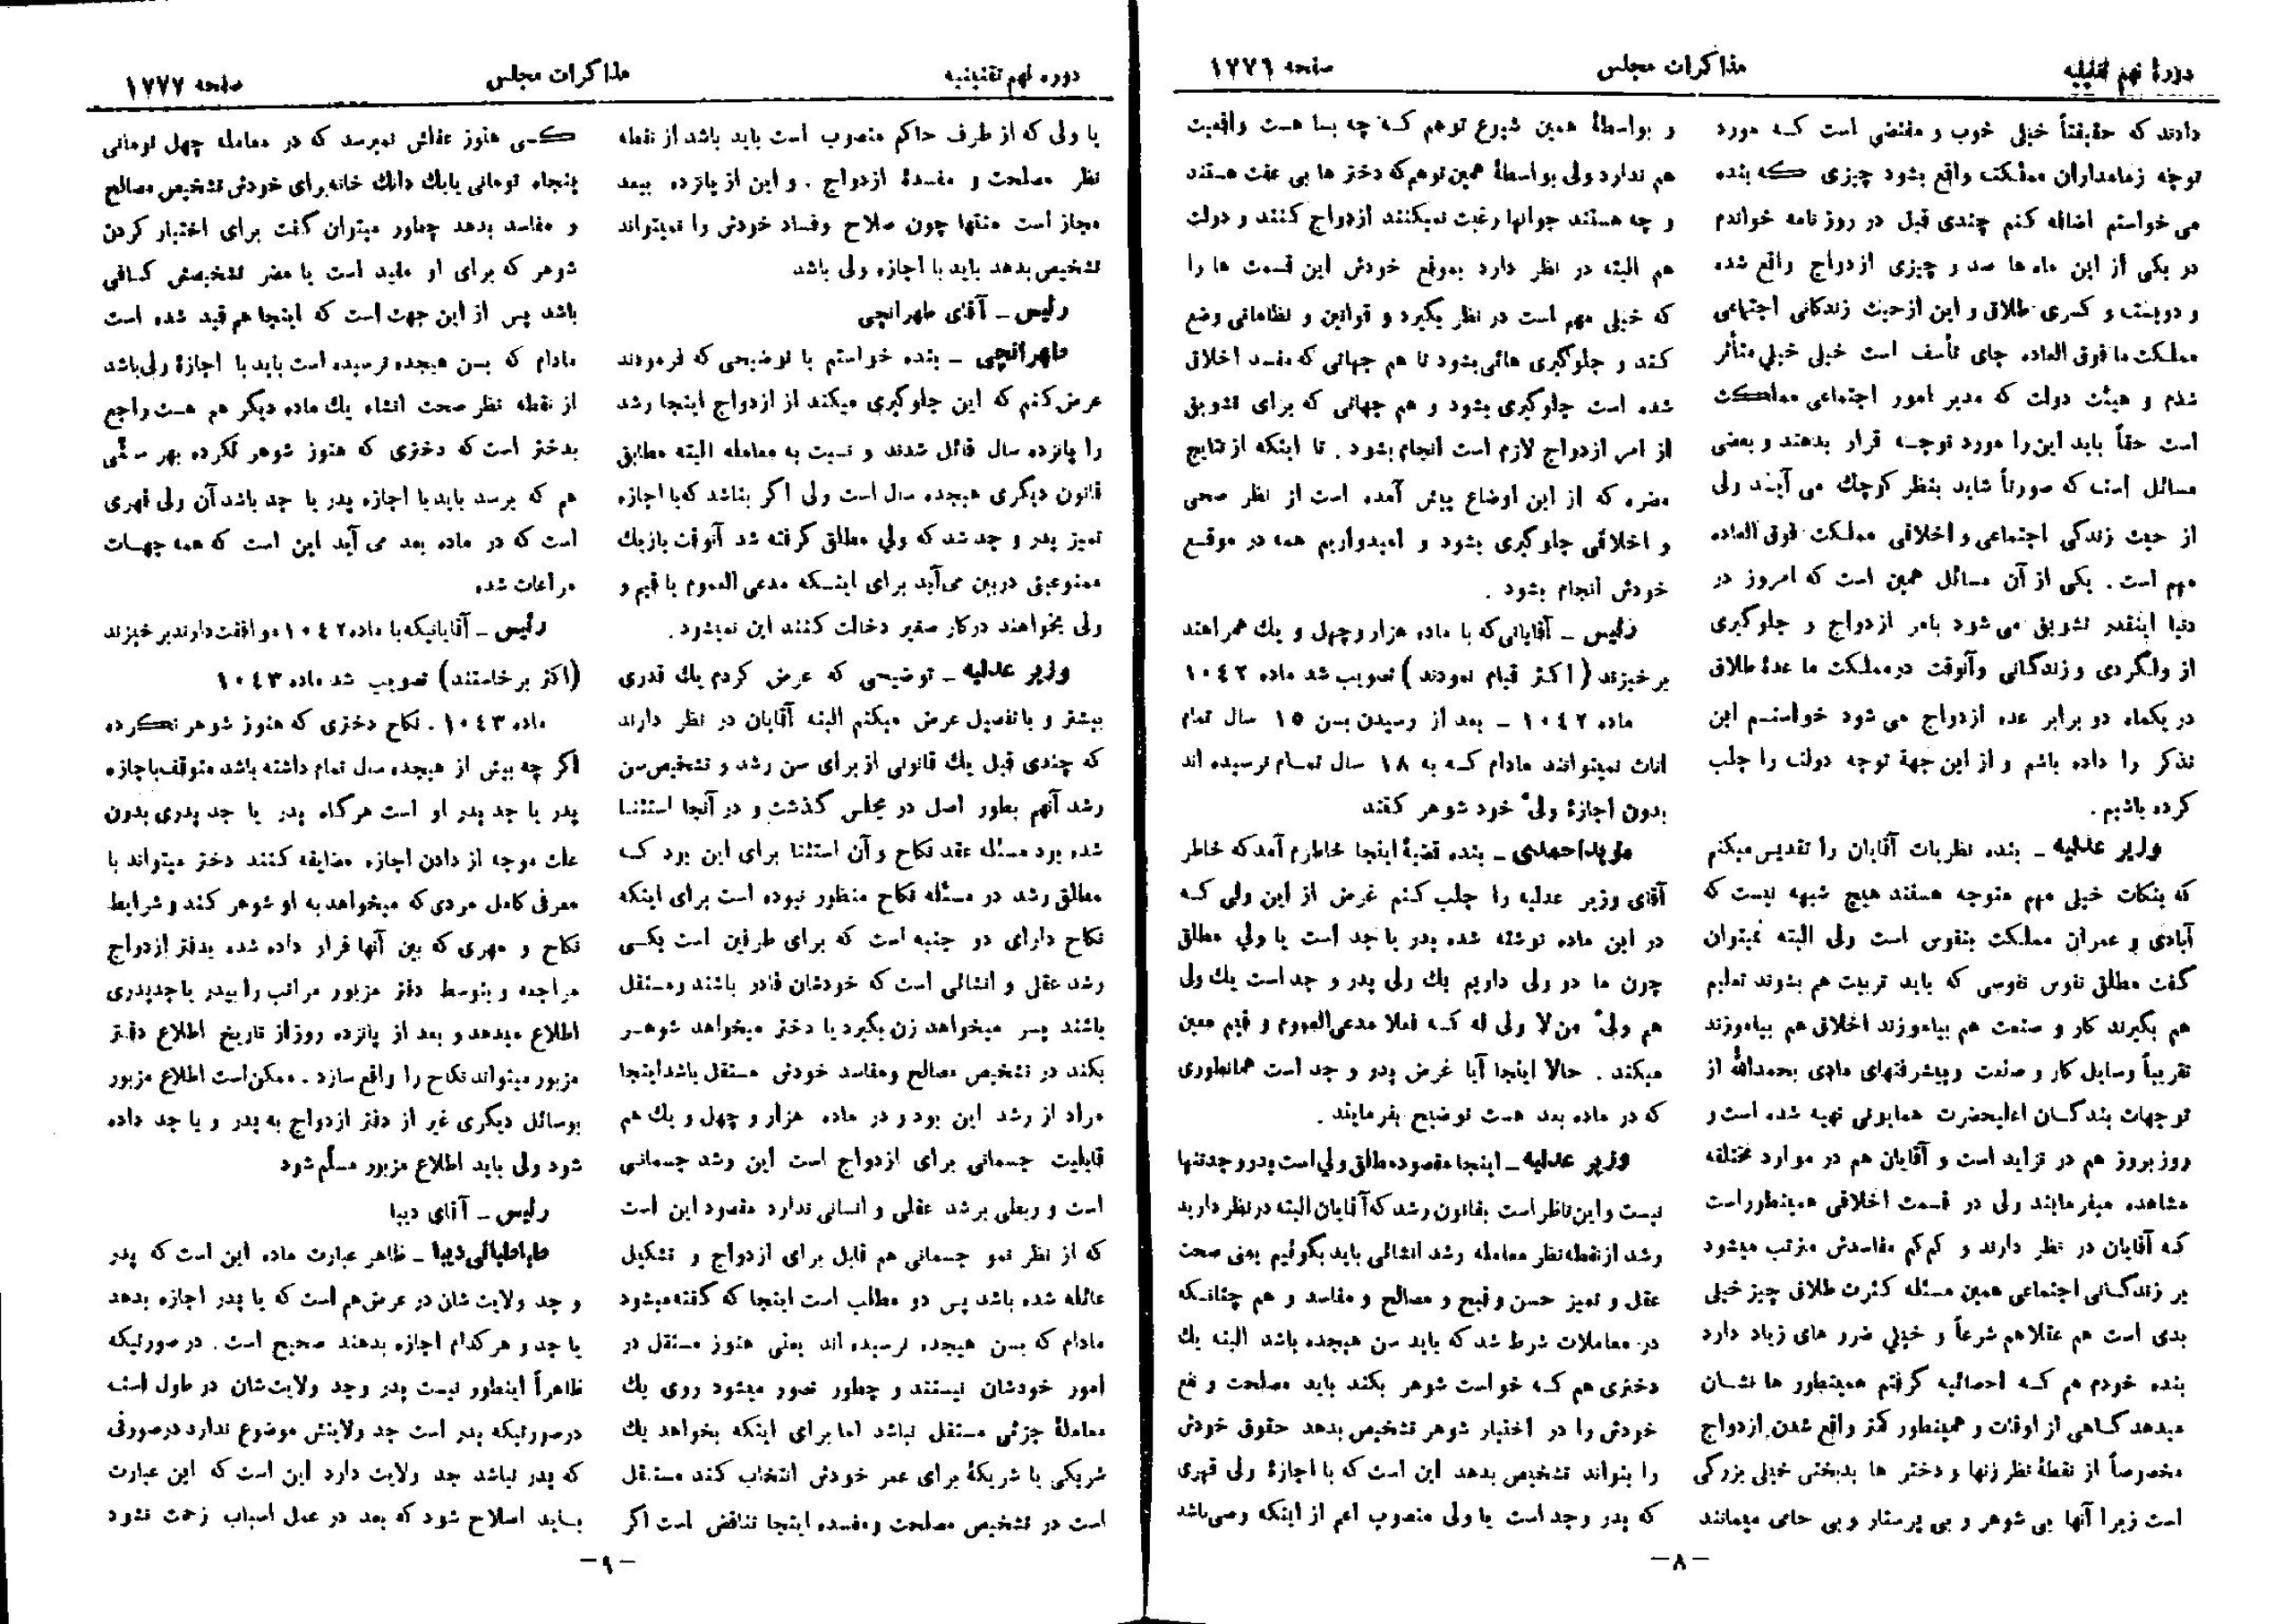 دورهٔ نهم تقنینیه
مذاکرات مجلس
صفحه ۱۷۷۶
دادند که حقیقتاً خیلی خوب و مقتضی است که مورد
توجه زمامداران مملکت واقع بشود چیزی که بنده
می خواستم اضافه کنم چندی قبل در روز نامه خواندم
در یکی از این ماه ها صد و چیزی ازدواج واقع شده
و دویست و کسری طلاق و این از حیث زندگانی اجتماعی
مملکت ما فوق العاده جای تأسف است خیلی خیلی متأثر
شدم و هیئت دولت که مدیر امور اجتماعی مملکت
است حقاً باید این را مورد توجه قرار بدهند و بعضی
مسائل است که صورتاً شاید بنظر کوچك می آیند ولی
از حیث زندگی اجتماعی و اخلاقی مملکت فوق العاده
مهم است . یکی از آن مسائل همین است که امروز در
دنیا اینقدر تشویق می شود بامر ازدواج و جلوگیری
از ولگردی و زندگانی وآنوقت درمملکت ما عدهٔ طلاق
در یکماه دو برابر عده ازدواج می شود خواستم این
تذکر را داده باشم و از این جهة توجه دولت را جلب
کرده باشیم .
وزیر عدلیه – بنده نظریات آقایان را تقدیس میکنم
که بنکات خیلی مهم متوجه هستند هیچ شبهه نیست که
آبادی و عمران مملکت بنفوس است ولی البته نمیتوان
گفت مطلق نفوس نفوسی که باید تربیت هم بشوند تعلیم
هم بگیرند کار و صنعت هم بیاموزند اخلاق هم بیاموزند
تقریباً وسایل کار و صنعت و پیشرفتهای مادی بحمدالله از
توجهات بندگان اعلیحضرت همایونی تهیه شده است و
روز بروز هم در تزاید است و آقایان هم در موارد مختلفه
مشاهده میفرمایند ولی در قسمت اخلاقی همینطور است
که آقایان در نظر دارند و کم کم مفاسدش مترتب میشود
بر زندگانی اجتماعی همین مسئله کثرت طلاق چیز خیلی
بدی است هم عقلا هم شرعاً و خیلی ضرر های زیاد دارد
بنده خودم هم که احصائیه گرفتم همینطور ها نشان
میدهد گاهی از اوقات و همینطور کمتر واقع شدن ازدواج
مخصوصاً از نقطهٔ نظر زنها و دختر ها بدبختی خیلی بزرگی
است زیرا آنها بی شوهر و بی پرستار و بی حامی میمانند
و بواسطهٔ همین شیوع توهم که چه بسا هست واقعیت
هم ندارد ولی بواسطهٔ همین توهم که دختر ها بی عفت هستند
و چه هستند جوانها رغبت نمیکنند ازدواج کنند و دولت
هم البته در نظر دارد بموقع خودش این قسمت ها را
که خیلی مهم است در نظر بگیرد و قوانین و نظاماتی وضع
کند و جلوگیری هائی بشود تا هم جهاتی که مفسد اخلاق
شده است جلوگیری بشود و هم جهاتی که برای تشویق
از امر ازدواج لازم است انجام بشود . تا اینکه از نتایج
مضره که از این اوضاع پیش آمده است از نظر صحی
و اخلاقی جلوگیری بشود و امیدواریم همه در موقع
خودش انجام بشود .
رئیس – آقایانی که با ماده هزار و چهل و یك همراهند
برخیزند ( اکثر قیام نمودند ) تصویب شد ماده ۱۰۴۲
ماده ۱۰۴۲ – بعد از رسیدن بسن ۱۵ سال تمام
اناث نمیتوانند مادام که به ۱۸ سال تمام نرسیده اند
بدون اجازهٔ ولیّ خود شوهر کنند
مؤید احمدی – بنده اینجا خاطرم آمد که خاطر
آقای وزیر عدلیه را جلب کنم غرض از این ولی که
در این ماده نوشته شده پدر یا جد است یا ولی مطلق
چون ما دو ولی داریم یك ولی پدر و جد است یك ولی
هم ولیّ من لا ولی له که فعلا مدعی العموم و قیم معین
میکند . حالا اینجا آیا غرض پدر و جد است همانطوری
که در ماده بعد هست توضیح بفرمایند .
وزیر عدلیه – اینجا مقصود مطلق ولی است پدر و جد تنها
نیست و این ناظر است بقانون رشد که آقایان البته در نظر دارید
رشد از نقطه نظر معامله رشد انشائی باید بگوئیم یعنی صحت
عقل و تمیز حسن و قبح و مصالح و مفاسد و هم چنانکه
در معاملات شرط شد که باید سن هیجده باشد البته یك
دختری هم که خواست شوهر بکند باید مصلحت و نفع
خودش را در اختیار شوهر تشخیص بدهد حقوق خودش
را بتواند تشخیص بدهد این است که با اجازهٔ ولی قهری
که پدر وجد است یا ولی منصوب اعم از اینکه وصی باشد
–۸–
دوره نهم تقنینیه
مذاکرات مجلس
صفحه ۱۷۷۷
یا ولی که از طرف حاکم منصوب است باید باشد از نقطه
نظر مصلحت و مفسدهٔ ازدواج . و این از پانزده ببعد
مجاز است منتها چون صلاح وفساد خودش را نمیتواند
تشخیص بدهد باید با اجازه ولی باشد
رئیس – آقای طهرانچی
طهرانچی – بنده خواستم با توضیحی که فرمودند
عرض کنم که این جلوگیری میکند از ازدواج اینجا رشد
را پانزده سال قائل شدند و نسبت به معامله البته مطابق
قانون دیگری هیجده سال است ولی اگر بناشد که با اجازه
تمیز پدر و جد شد که ولی مطلق گرفته شد آنوقت باز یك
ممنوعیتی در بین می‌آید برای اینکه مدعی العموم یا قیم و
ولی بخواهند در کار صغیر دخالت کنند این نمیشود .
وزیر عدلیه – توضیحی که عرض کردم یك قدری
بیشتر و با تفصیل عرض میکنم البته آقایان در نظر دارند
که چندی قبل یك قانونی از برای سن رشد و تشخیص سن
رشد آنهم بطور اصل در مجلس گذشت و در آنجا استثنا
شده بود مسئله عقد نکاح و آن استثنا برای این بود که
مطلق رشد در مسئله نکاح منظور نبوده است برای اینکه
نکاح دارای دو جنبه است که برای طرفین است یکی
رشد عقلی و انشائی است که خودشان قادر باشند ومستقل
باشند پسر میخواهد زن بگیرد یا دختر میخواهد شوهر
بکند در تشخیص مصالح ومفاسد خودش مستقل باشد اینجا
مراد از رشد این بود و در ماده هزار و چهل و یك هم
قابلیت جسمانی برای ازدواج است این رشد جسمانی
است و ربطی برشد عقلی و انسانی ندارد مقصود این است
که از نظر نمو جسمانی هم قابل برای ازدواج و تشکیل
عائله شده باشد پس دو مطلب است اینجا که گفته میشود
مادام که بسن هیجده نرسیده اند یعنی هنوز مستقل در
امور خودشان نیستند و چطور تصور میشود روی یك
معاملهٔ جزئی مستقل نباشد اما برای اینکه بخواهد یك
شریکی یا شریکهٔ برای عمر خودش انتخاب کند مستقل
است در تشخیص مصلحت ومفسده اینجا تناقض است اگر
کسی هنوز عقلش نمیرسد که در معامله چهل تومانی
پنجاه تومانی یا یك دانك خانه برای خودش تشخیص مصالح
و مفاسد بدهد چطور میتوان گفت برای اختیار کردن
شوهر که برای او مفید است یا مضر تشخیصش کافی
باشد پس از این جهت است که اینجا هم قید شده است
مادام که بسن هیجده نرسیده است باید با اجازهٔ ولی باشد
از نقطه نظر صحت انشاء یك ماده دیگر هم هست راجع
بدختر است که دختری که هنوز شوهر نکرده بهر سنّی
هم که برسد باید با اجازه پدر یا جد باشد آن ولی قهری
است که در ماده بعد می آید این است که همه جهات
مراعات شده
رئیس – آقایانیکه با ماده ۱۰۴۲ موافقت دارند برخیزند
(اکثر برخاستند) تصویب شد ماده ۱۰۴۳
ماده ۱۰۴۳ . نکاح دختری که هنوز شوهر نکرده
اگر چه بیش از هیجده سال تمام داشته باشد متوقف باجازه
پدر یا جد پدر او است هرگاه پدر یا جد پدری بدون
علت موجه از دادن اجازه مضایقه کنند دختر میتواند با
معرفی کامل مردی که میخواهد به او شوهر کند و شرایط
نکاح و مهری که بین آنها قرار داده شده بدفتر ازدواج
مراجعه و بتوسط دفتر مزبور مراتب را بپدر یا جد پدری
اطلاع میدهد و بعد از پانزده روز از تاریخ اطلاع دفتر
مزبور میتواند نکاح را واقع سازد . ممکن است اطلاع مزبور
بوسائل دیگری غیر از دفتر ازدواج به پدر و یا جد داده
شود ولی باید اطلاع مزبور مسلّم شود
رئیس – آقای دیبا
طباطبائی دیبا – ظاهر عبارت ماده این است که پدر
و جد ولایت شان در عرض هم است که یا پدر اجازه بدهد
یا جد و هر کدام اجازه بدهند صحیح است . در صورتیکه
ظاهراً اینطور نیست پدر وجد ولایت‌شان در طول است
درصورتیکه پدر است جد ولایتش موضوع ندارد درصورتی
که پدر نباشد جد ولایت دارد این است که این عبارت
باید اصلاح شود که بعد در عمل اسباب زحمت نشود
–۹–